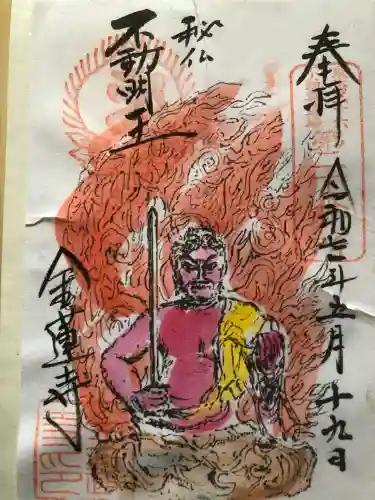 奉拝
令和七年五月十九日
秘仏
不動明王
金蓮寺